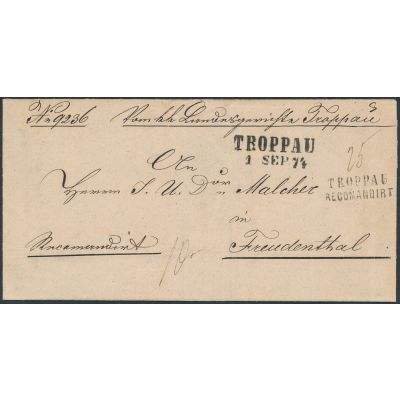 No 9236 Vom kk Landesgerichte Troppau
TROPPAU
1 SEP 74
An
25
Herrn J. U. Dor Malcher
TROPPAU
RECOMANDIRT
in
Recomandirt
Freudenthal.